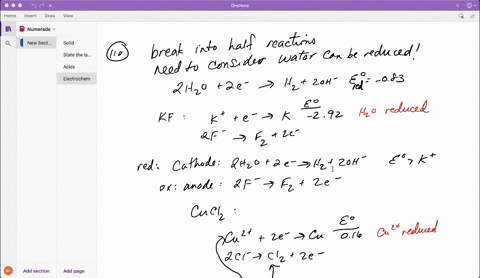 OneNote
Numerade
New Secti...
Solid
State the la...
Acids
Electrochem
110
break into half reactions
need to consider water can be reduced!
2H₂O + 2e⁻ → H₂ + 2OH⁻ ε°red = -0.83
KF : K⁺ + e⁻ → K ε° -2.92 H₂O reduced
2F⁻ → F₂ + 2e⁻
red: Cathode: 2H₂O + 2e⁻ → H₂ + 2OH⁻ ε° > K⁺
ox: anode: 2F⁻ → F₂ + 2e⁻
CuCl₂ :
Cu²⁺ + 2e⁻ → Cu ε° 0.16 Cu²⁺ reduced
2Cl⁻ → Cl₂ + 2e⁻